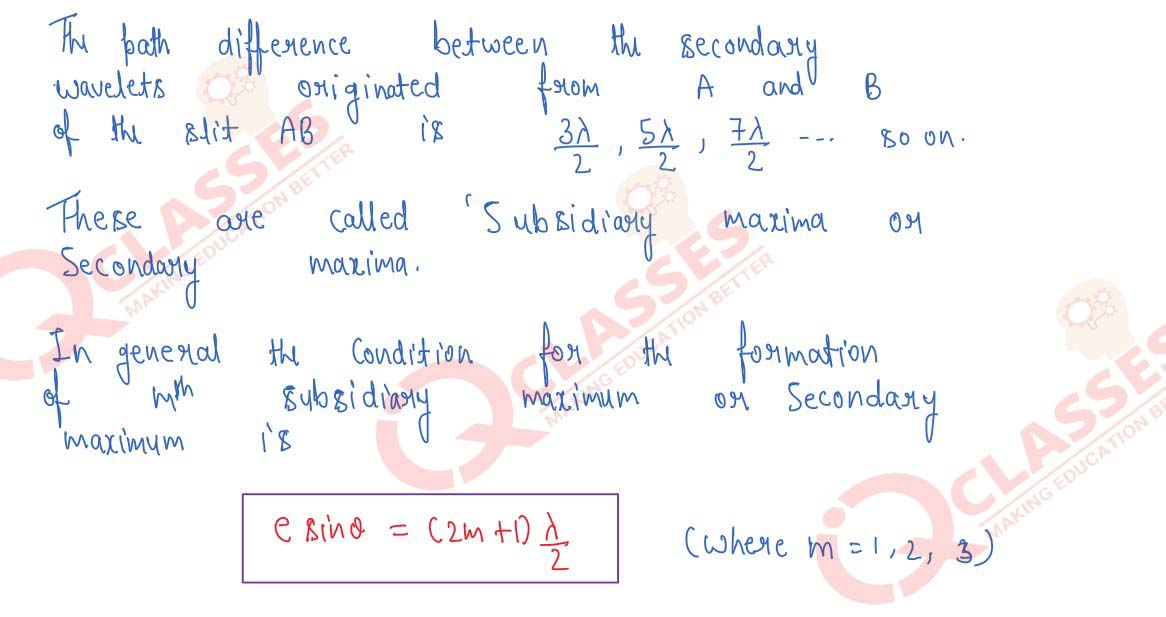 The path difference between the secondary
wavelets originated from A and B
of the slit AB is 3λ/2, 5λ/2, 7λ/2 ---- so on.
These are called 'Subsidiary maxima or
Secondary maxima.
In general the Condition for the formation
of mth subsidiary maximum or Secondary
maximum is
e sinθ = (2m+1) λ/2 (where m = 1, 2, 3)
CLASSES
MAKING EDUCATION BETTER
CLASSES
MAKING EDUCATION BETTER
CLASSES
MAKING EDUCATION BE